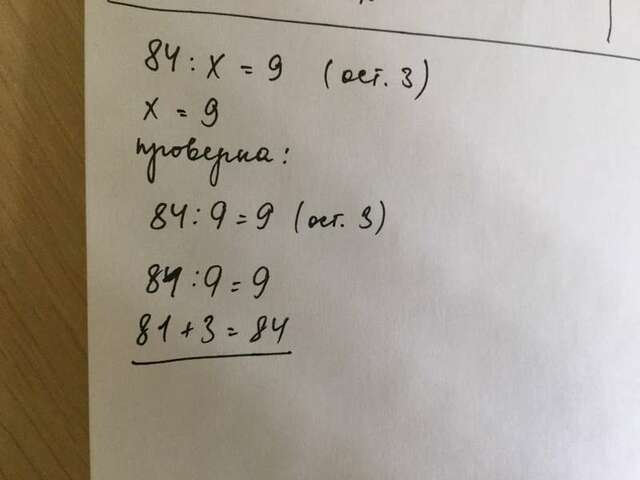 84 : x = 9 (ост. 3)
x = 9
проверка:
84 : 9 = 9 (ост. 3)
81 : 9 = 9
81 + 3 = 84